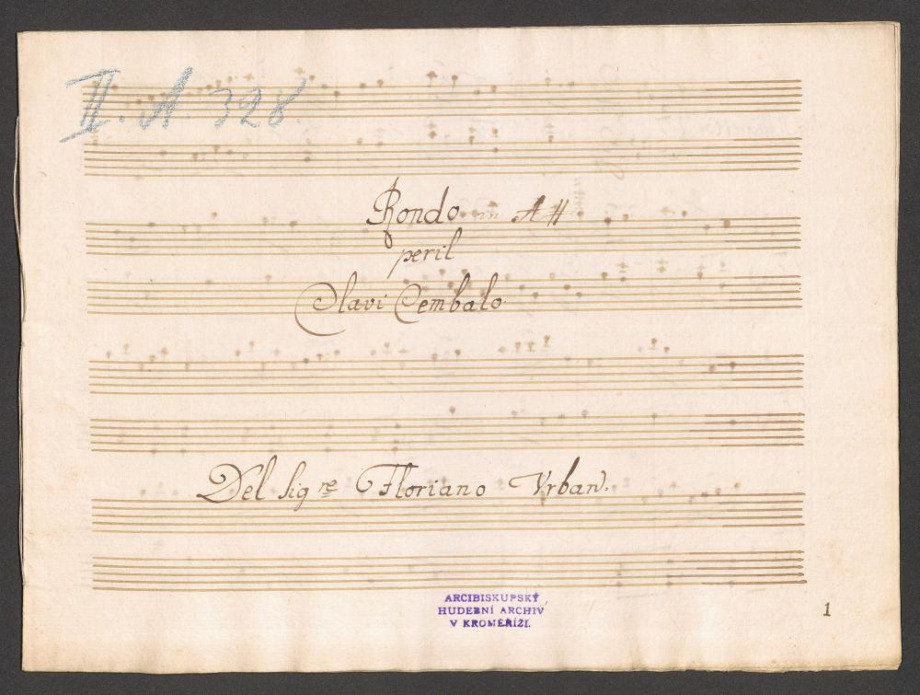 II. A. 328.
Rondo in A #
peril
Clavi Cembalo
Del sig re Floriano Vrban.
ARCIBISKUPSKÝ
HUDEBNÍ ARCHIV
V KROMĚŘÍŽI.
1